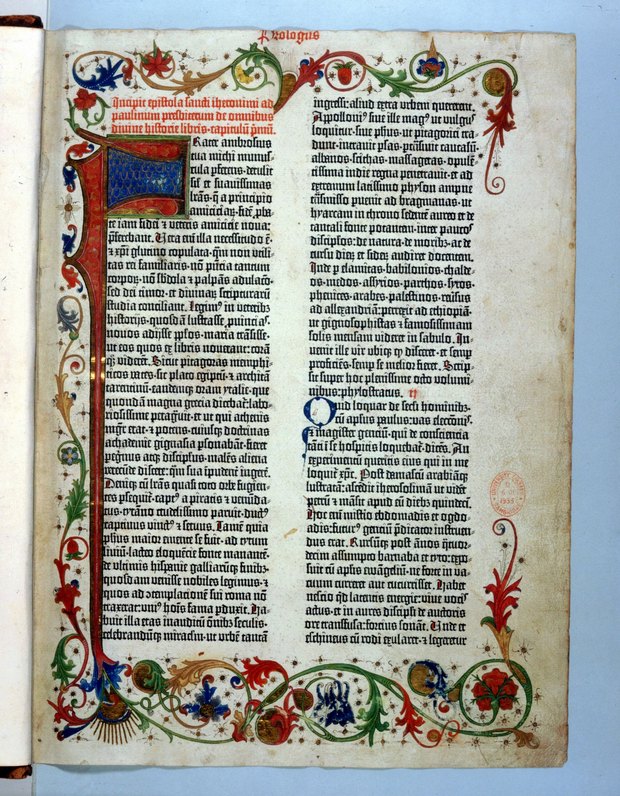 Prologus
Incipit epistola sancti iheronimi ad
paulinum presbiterum de omnibus
divine historie libris. capitulū pmū.
Frater ambrosius
tua michi munus-
cula pferens. detulit
sil̄ et suavissimas
lr̄as. q̄ a principio
amiciciaꝝ. fidē. pba-
te iam fidei ⁊ veteris amicicie nova:
pferebant. Vera em̄ illa necessitudo ē.
⁊ xp̄i glutino copulata. qm̄ non utili-
tas rei familiaris. nō pn̄tia tantum
corpoꝝ. nō sb̄dola ⁊ palpās adulacō.
sed dei timor. et divinaꝝ scripturaꝝ
studia conciliant. Legim⁹ in veterib⁊
historijs. quosdā lustrasse puincias.
novos adijsse pplōs. maria trāsisse.
ut eos quos ex libris noverant: corā
q⁊ viderēt. Sicut pitagoras memphi-
ticos vates. sic plato egiptū. ⁊ architā
tarentinū. eandemq⁊ oram ytalie. que
quondā magna grecia dicebat̄: labo-
riosissime peragravit. et ut qui athenis
mgr̄ erat. ⁊ potens. cuiusq⁊ doctrinas
achademie gignasia psonabāt. fieret
pegrinus atq⁊ discipulus. malēs aliena
verecunde discere: q̄ sua īpudent̄ ingerē.
Deniq⁊ cū lr̄as quasi toto orbe fugien-
tes psequit̄. capt⁹ a piratis ⁊ venūda-
tus. tyrāno crudelissimo paruit. duct⁹
captivus vinct⁹ ⁊ servus. Tamē quia
ph̄us maior emente se fuit. ad tytum
liviū. lacteo eloquētie fonte manantē.
de ultimis hispanie galliarūq⁊ finib⁊.
quosdam venisse nobiles legimus. ⁊
quos ad ɔtemplacionē sui roma nō
traxerat: uni⁹ hoīs fama pduxit. Ha-
buit illa etas inauditū oīnib⁊ seculis.
celebrandūq⁊ miraclm̄. ut urbē tantā
ingressi: aliud extra urbem quererent.
Apolloni⁹ sive ille mag⁹ ut vulgus
loquitur. sive ph̄us. ut pitagorici tra-
dunt. intravit psas. ptrāsivit caucasū.
albanos. scithas. massagetas. opulē-
tissima indie regna penetravit. et ad
extremum latissimo physon amne
trāsmisso puenit ad bragmanas. ut
hyarcam in throno sedentē aureo et de
tantali fonte potantem. inter paucos
discipl̄os. de natura. de morib⁊. ac de
cursu dieꝝ et sideꝝ audiret docentem.
Inde p elamitas. babilonios. chalde-
os. medos. assyrios. parthos. syros.
phenices. arabes. palestinos. rēvsus
ad allexandriā: perrexit ad ethiopiā.
ut gignosophistas ⁊ famosissimam
solis mensam videret in sabulo. In-
venit ille vir ubiq⁊ qd̄ disceret. et semp
proficiēs. semp se melior fieret. Scrip-
sit super hoc plenissime octo volumi-
nibus: phylostratus.
Quid loquar de seculi hominib⁊.
cū apl̄us paulus. vas electōnis.
⁊ magister gencium. qui de consciencia
tāti i se hospitis loquebat̄. dicēs. An
experimentū queritis eius qui in me
loquit̄ xp̄c. Post damascū arabiāq⁊
lustratā: ascēdit iherosolimā ut videret
petrū ⁊ māsit apud eū dieb⁊ quindeci.
Hoc em̄ misterio ebdomadis et ogdo-
adis: futur⁹ genciū pdicator instruen-
dus erat. Rursūq⁊ post ānos q̄tuor-
decim assumpto barnaba et tyto: expo-
suit cū apl̄is ewāgelium. ne forte in va-
cuum curreret aut cucurrisset. Habet
nescio qd̄ latentis energie: vive vocis
actus. et in aures discipl̄i de auctoris
ore transfusa: forcius sonāt. Unde et
eschineus cū rodi exularet. ⁊ legeretur